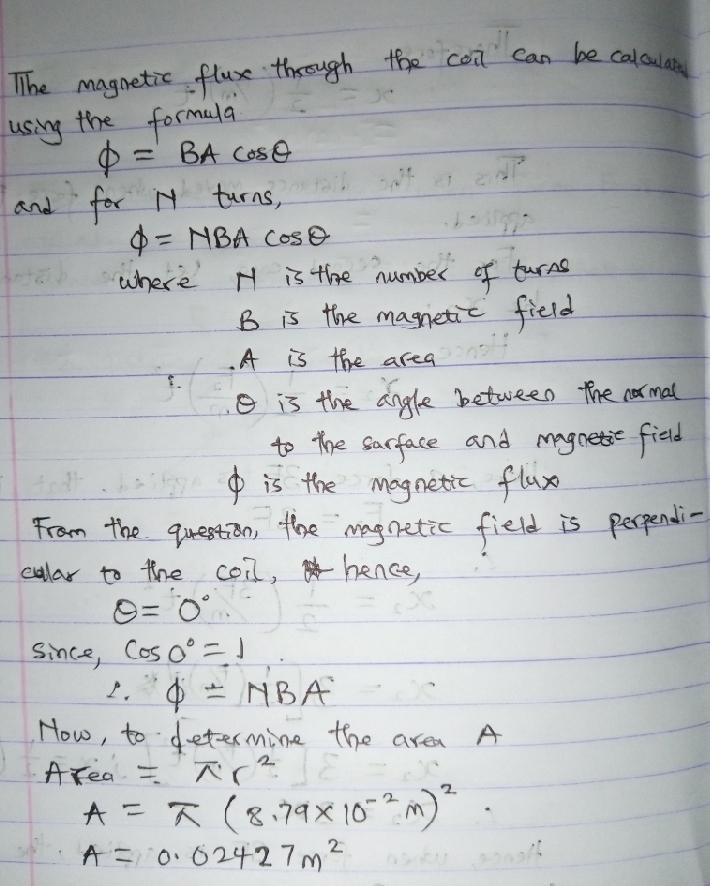 The magnetic flux through the coil can be calculated
using the formula
ϕ = BA cosθ
and for N turns,
ϕ = NBA cosθ
where N is the number of turns
B is the magnetic field
A is the area
θ is the angle between the normal
to the surface and magnetic field
ϕ is the magnetic flux
From the question, the magnetic field is perpendi-
cular to the coil, hence,
θ = 0°
since, cos 0° = 1
∴ ϕ = NBA
Now, to determine the area A
Area = πr²
A = π (8.79 × 10⁻² m)²
A = 0.02427 m²